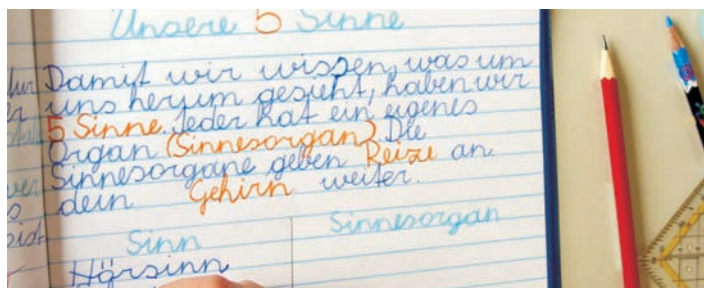 Unsere 5 Sinne
Damit wir wissen, was um
uns herum gesieht, haben wir
5 Sinne. Jeder hat ein eigenes
Organ (Sinnesorgan). Die
Sinnesorgane geben Reize an
dein Gehirn weiter.
Sinn Sinnesorgan
Hörsinn